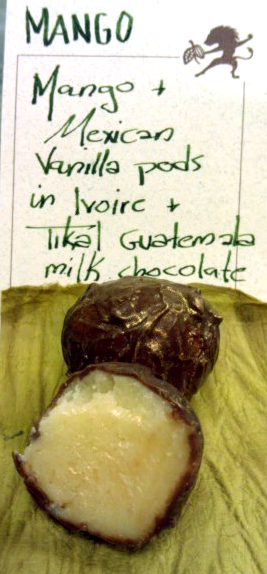 MANGO
Mango +
Mexican
Vanilla pods
in Ivoire +
Tikál Guatemala
milk chocolate